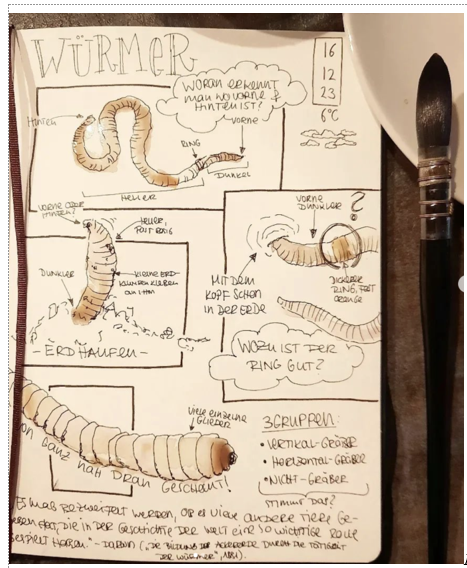 WÜRMER
WORAN ERKENNT
MAN WO VORNE &
HINTEN IST?
16
12
23
6°C
HINTEN
VORNE
RING
DUNKEL
HELLER
VORNE ODER
HINTEN?
HELLER,
FAST ROSIG
DUNKLER
KLEINE ERD-
KLUMPEN KLEBEN
- ERDHAUFEN -
VORNE
DUNKLER
?
MIT DEM
KOPF SCHON
IN DER ERDE
DICKERER
RING, FAST
ORANGE
WOZU IST DER
RING GUT?
VIELE EINZELNE
GLIEDER
GANZ NAH DRAN GESCHAUT!
3 GRUPPEN:
• VERTIKAL-GRÄBER
• HORIZONTAL-GRÄBER
• NICHT-GRÄBER
STIMMT DAS?
BEZWEIFELT WERDEN, OB ES VIELE ANDERE TIERE GE-
DIE IN DER GESCHICHTE DER WELT EINE SO WICHTIGE ROLLE
HABEN." - DARWIN („DIE BILDUNG DER ACKERERDE DURCH DIE TÄTIGKEIT
DER WÜRMER", 1881).